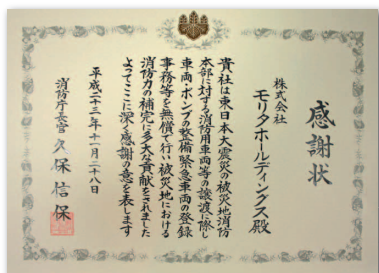 感謝状
株式会社
モリタホールディングス殿
貴社は東日本大震災の被災地消防
本部に対する消防用車両等の譲渡に際し
車両・ポンプの整備緊急車両の登録
事務等を無償で行い被災地における
消防力の補完に多大な貢献をされました
よってここに深く感謝の意を表します
平成二十三年十一月二十八日
消防庁長官 久保信保